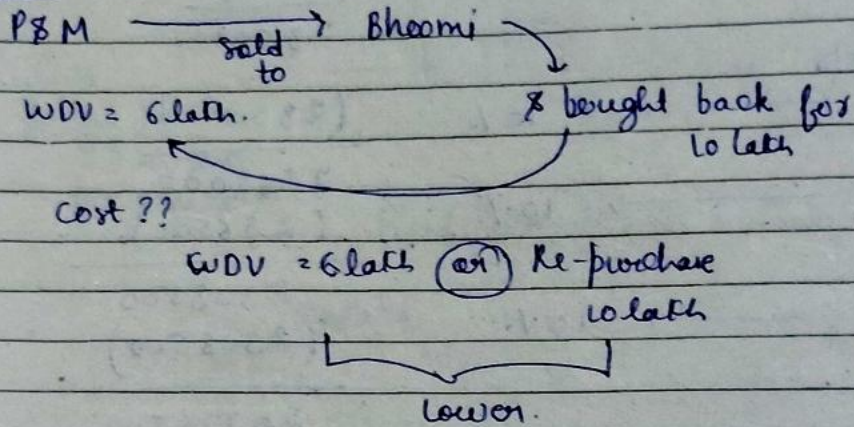 P&M ⟶ Bhoomi
sold
to
WDV = 6 lakh.
& bought back for
10 lakh
Cost ??
WDV = 6 lakh or Re-purchase
10 lakh
Lower.